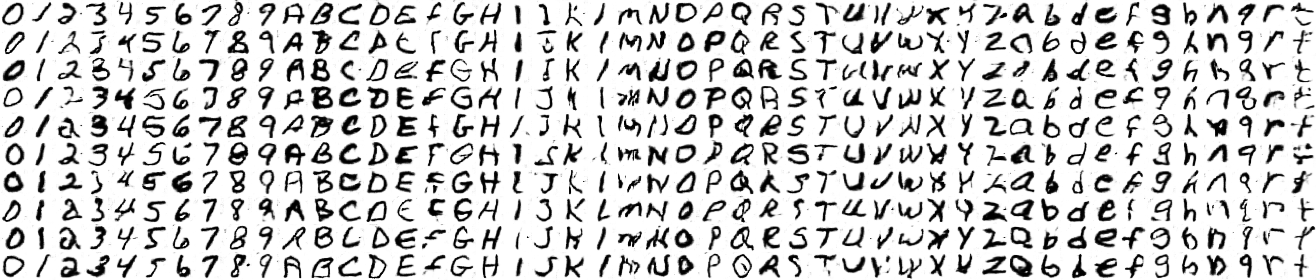 0 1 2 3 4 5 6 7 8 9 A B C D E f G H I J K l m N O P Q R S T U V W X Y Z a b d e f g h n q r t
0 1 2 3 4 5 6 7 8 9 A B C D E F G H I J K l m N O P Q R S T U V W X Y Z a b d e f g h n q r t
0 1 2 3 4 5 6 7 8 9 A B C D E f G H I J K l m N O P Q R S T U V W X Y Z a b d e f g h n q r t
0 1 2 3 4 5 6 7 8 9 A B C D E f G H I J K l m N O P Q R S T U V W X Y Z a b d e f g h n q r t
0 1 2 3 4 5 6 7 8 9 A B C D E f G H I J K l m N O P Q R S T U V W X Y Z a b d e f g h n q r t
0 1 2 3 4 5 6 7 8 9 A B C D E F G H I J K l m N O P Q R S T U V W X Y Z a b d e f g h n q r t
0 1 2 3 4 5 6 7 8 9 A B C D E F G H I J K l m N O P Q R S T U V W X Y Z a b d e f g h n q r t
0 1 2 3 4 5 6 7 8 9 A B C D E F G H I J K L m N O P Q R S T U V W X Y Z a b d e f g h n q r t
0 1 2 3 4 5 6 7 8 9 A B C D E F G H I J K l m N O P Q R S T U V W X Y Z a b d e f g h n q r t
0 1 2 3 4 5 6 7 8 9 A B C D E f G H I J K l m N O P Q R S T U V W X Y Z a b d e f g h n q r t